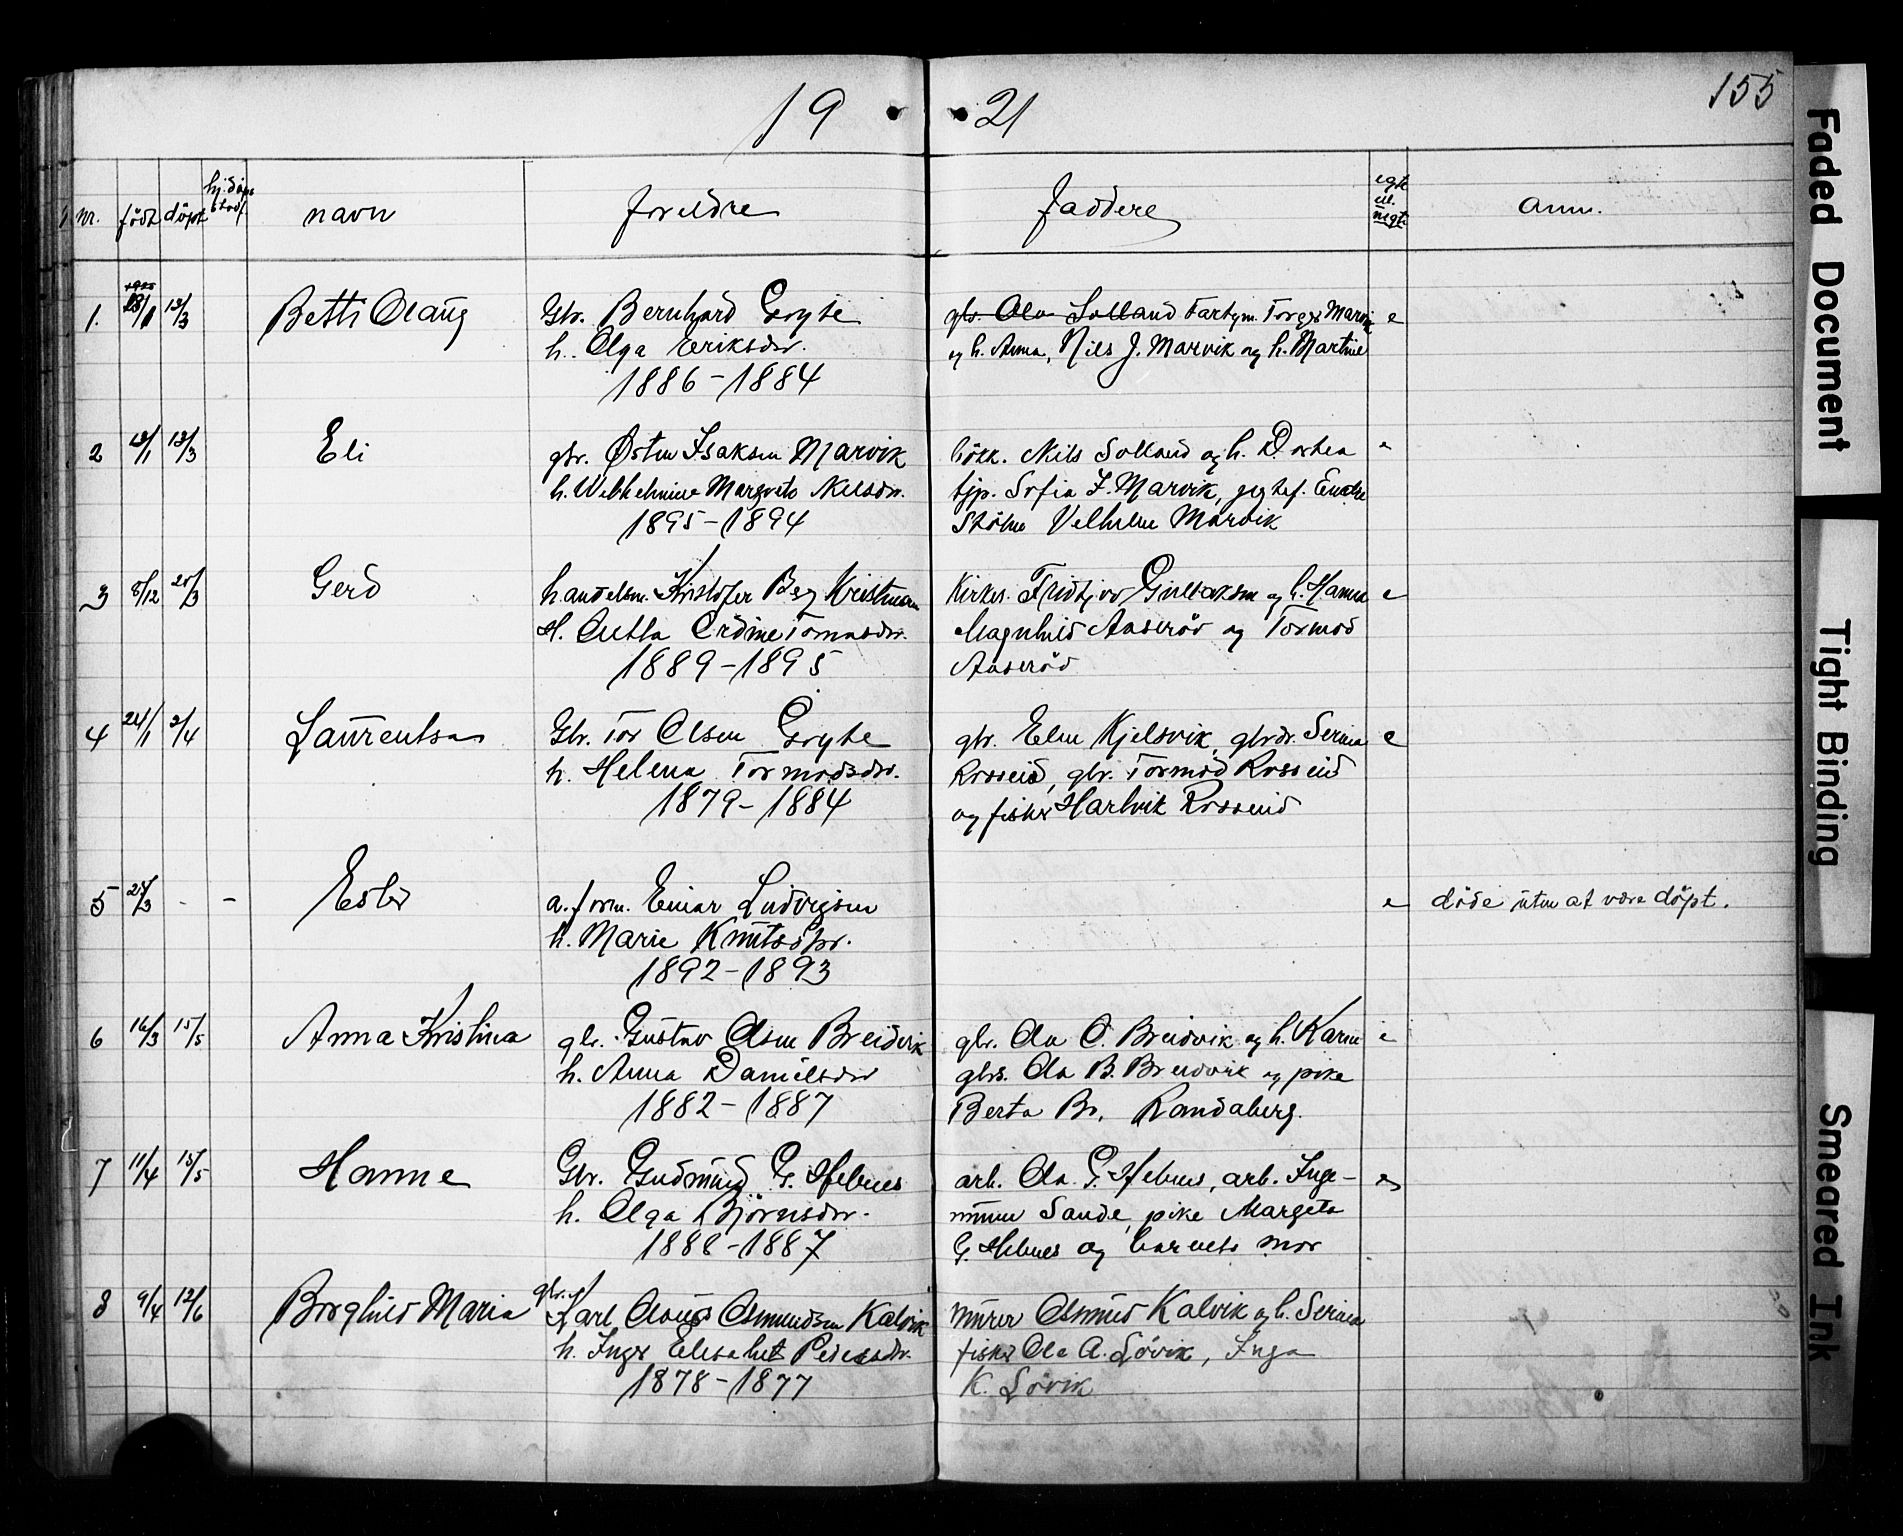 19 21
155
nr. födt döpt hj.döpt stadf. navn foreldre faddere egte el. uegte anm.
1. 1920 13/3 Betti Olaug
Gbr. Bernhard Gryte
h. Olga Eriksdtr.
1886-1884
gbr. Ola Solland Fartym. Torger Marvik e
og h. Anna, Nils J. Marvik og h. Martine
2 12/1 13/3 Eli
gbr. Östen Isaksen Marvik
h. Margrete Nilsdtr.
1895-1894
Nils Solland og h. Dortea e
tjp. Sofia I. Marvik,
Marvik
3 8/12 20/3 Gerd
handelsm. Kristofer Berg Kristensen
H. Ordine Tomasdtr.
1889-1895
Kirkes. Fridtjov og h. Hanna e
Magnhild Aaseröd og Tormod
Aaseröd
4 24/1 2/4 Laurentsa
Gbr. Tor Olsen Gryte
h. Helena Tormodsdtr.
1879-1884
gbr. Elen Kjelsvik, gbrdr. Serina e
Rosseid, gbr. Tormod Rosseid
og fisker Hartvik Rosseid
5 24/3 - - Ester
a.form. Einar Ludvigsen
h. Marie Knutsdtr.
1892-1893
e döde uten at være döpt.
6 16/3 15/5 Anna Kristina
gbr. Gustav Olsen Breidvik
h. Anna Danielsdtr
1882-1887
gbr. Ola O. Breidvik og h. Karen e
gbrs. Ola B. Breidvik og pike
Berta Br. Randaberg.
7 11/4 15/5 Hanne
Gbr. Gudmund G. Hebnes
h. Olga Björnsdtr.
1888-1887
arb. Ola G. Hebnes, arb. Inge- e
Sande, pike Margeta
G. Hebnes og barnets mor
8 9/4 12/6 Borghild Maria
gbr.
Karl Osmundsen Kalvik
h. Inger Elisabet Pedersdtr.
1878-1877
murer Osmund Kalvik og h. Serina
fisker Ola A. Lövik, Inga
K. Lövik
Faded Document
Tight Binding
Smeared Ink